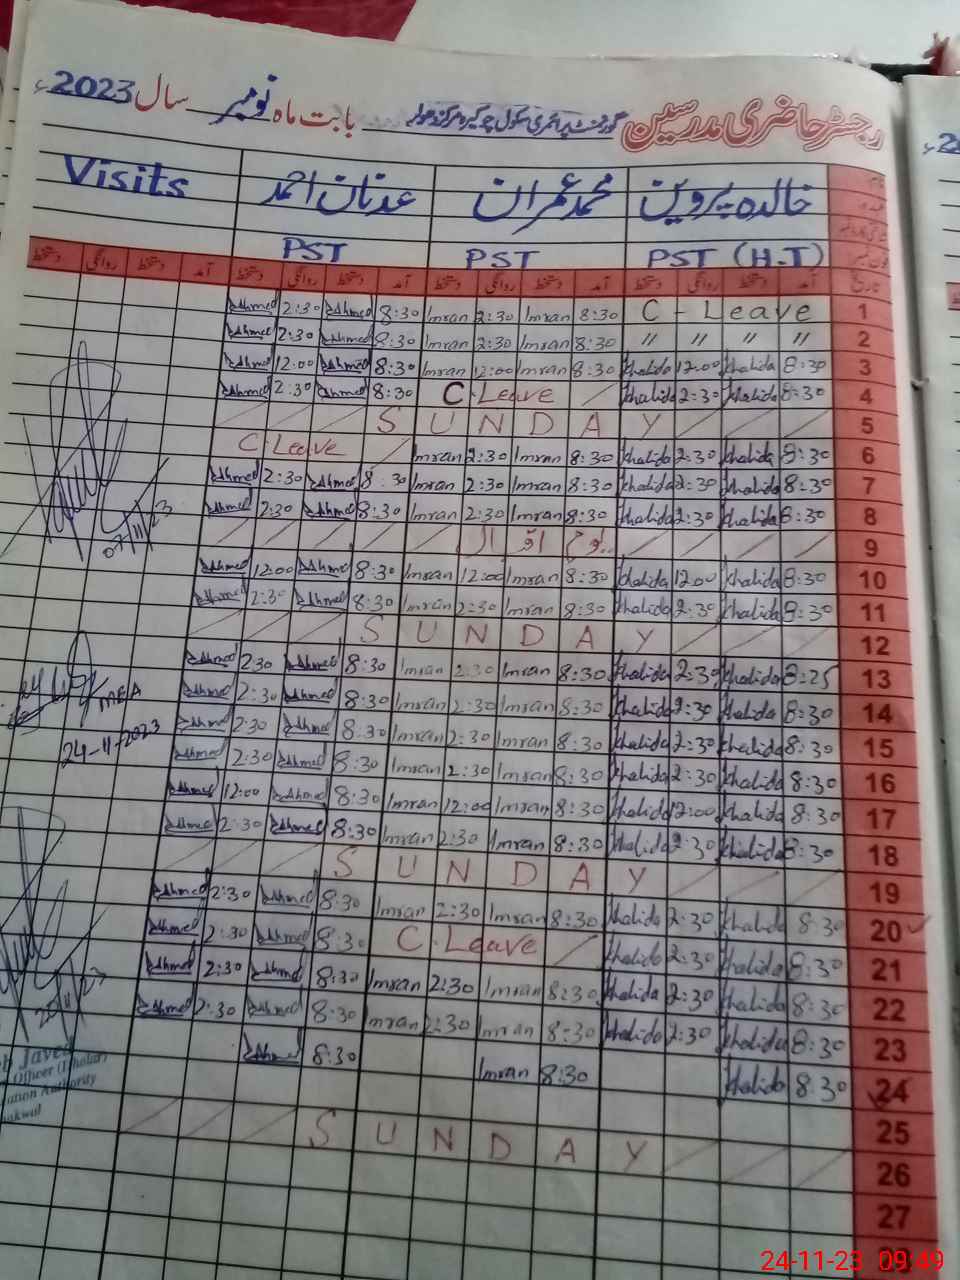 رجسٹر حاضری مدرسین گورنمنٹ پرائمری سکول چوکیرہ مرکز ڈھولہ بابت ماہ نومبر سال 2023ء
خالدہ پروین محمد عمران عدنان احمد Visits
PST (H.T) PST PST
تاریخ آمد دستخط روانگی دستخط آمد دستخط روانگی دستخط آمد دستخط روانگی دستخط آمد دستخط روانگی دستخط
Ahmed 2:30 Ahmed 8:30 Imran 2:30 Imran 8:30 C - Leave 1
Ahmed 2:30 Ahmed 8:30 Imran 2:30 Imran 8:30 〃 〃 〃 〃 2
Ahmed 12:00 Ahmed 8:30 Imran 12:00 Imran 8:30 Khalida 12:00 Khalida 8:30 3
Ahmed 2:30 Ahmed 8:30 C.Leave Khalida 2:30 Khalida 8:30 4
S U N D A Y 5
C.Leave Imran 2:30 Imran 8:30 Khalida 2:30 Khalida 8:30 6
Ahmed 2:30 Ahmed 8:30 Imran 2:30 Imran 8:30 Khalida 2:30 Khalida 8:30 7
Ahmed 2:30 Ahmed 8:30 Imran 2:30 Imran 8:30 Khalida 2:30 Khalida 8:30 8
07/11/23
یوم اقبال 9
Ahmed 12:00 Ahmed 8:30 Imran 12:00 Imran 8:30 Khalida 12:00 Khalida 8:30 10
Ahmed 2:30 Ahmed 8:30 Imran 2:30 Imran 8:30 Khalida 2:30 Khalida 8:30 11
S U N D A Y 12
Ahmed 2:30 Ahmed 8:30 Imran 2:30 Imran 8:30 Khalida 2:30 Khalida 8:25 13
MEA Ahmed 2:30 Ahmed 8:30 Imran 2:30 Imran 8:30 Khalida 2:30 Khalida 8:30 14
24-11-2023 Ahmed 2:30 Ahmed 8:30 Imran 2:30 Imran 8:30 Khalida 2:30 Khalida 8:30 15
Ahmed 2:30 Ahmed 8:30 Imran 2:30 Imran 8:30 Khalida 2:30 Khalida 8:30 16
Ahmed 12:00 Ahmed 8:30 Imran 12:00 Imran 8:30 Khalida 12:00 Khalida 8:30 17
Ahmed 2:30 Ahmed 8:30 Imran 2:30 Imran 8:30 Khalida 2:30 Khalida 8:30 18
S U N D A Y 19
Ahmed 2:30 Ahmed 8:30 Imran 2:30 Imran 8:30 Khalida 2:30 Khalida 8:30 20
Ahmed 2:30 Ahmed 8:30 C.Leave Khalida 2:30 Khalida 8:30 21
Ahmed 2:30 Ahmed 8:30 Imran 2:30 Imran 8:30 Khalida 2:30 Khalida 8:30 22
Ahmed 2:30 Ahmed 8:30 Imran 2:30 Imran 8:30 Khalida 2:30 Khalida 8:30 23
Ahmed 8:30 Imran 8:30 Khalida 8:30 24
Javed
Officer
Authority
25
S U N D A Y 26
27
24-11-23 09:49